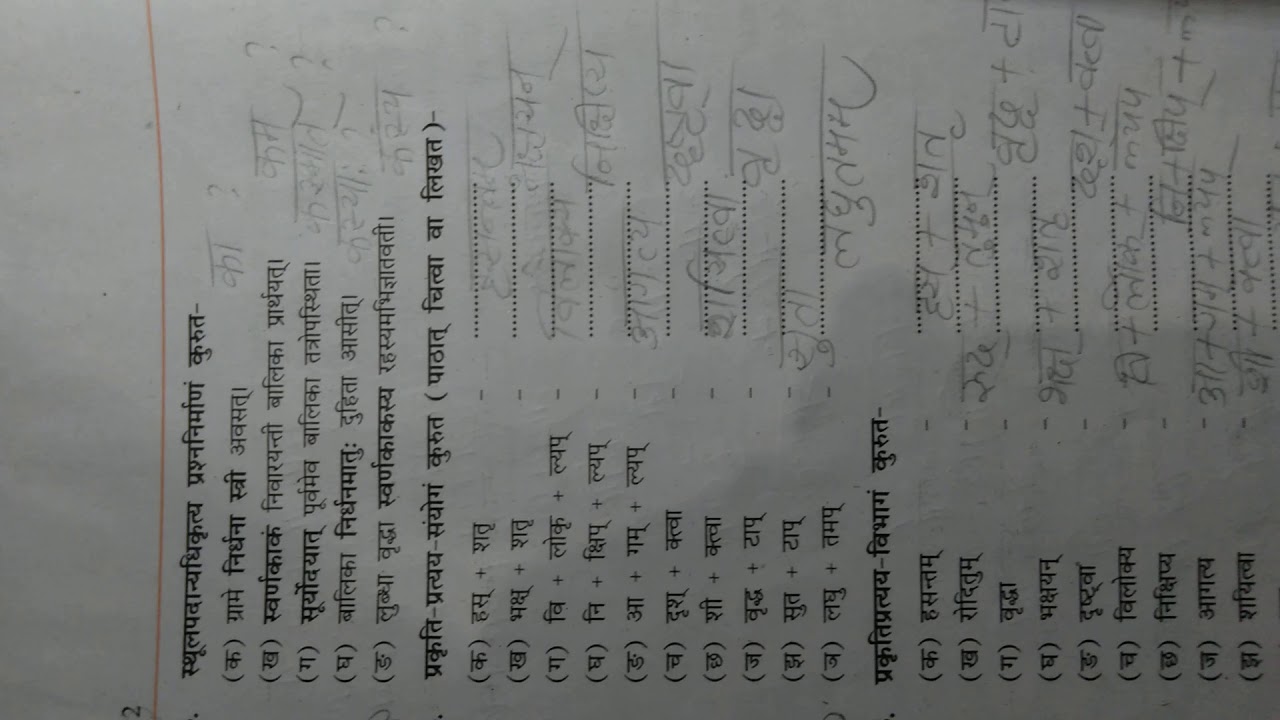 2
स्थूलपदान्यधिकृत्य प्रश्ननिर्माणं कुरुत-
(क) ग्रामे निर्धना स्त्री अवसत्। का ?
(ख) स्वर्णकाकं निवारयन्ती बालिका प्रार्थयत्। कम ?
(ग) सूर्योदयात् पूर्वमेव बालिका तत्रोपस्थिता। कस्मात् ?
(घ) बालिका निर्धनमातुः दुहिता आसीत्। कस्याः ?
(ङ) लुब्धा वृद्धा स्वर्णकाकस्य रहस्यमभिज्ञातवती। कस्य ?
प्रकृति-प्रत्यय-संयोगं कुरुत ( पाठात् चित्वा वा लिखत )-
(क) हस् + शतृ -
(ख) भक्ष् + शतृ -
(ग) वि + लोकृ + ल्यप् - विलोक्य
(घ) नि + क्षिप् + ल्यप् - निक्षिप्य
(ङ) आ + गम् + ल्यप् - आगत्य
(च) दृश् + क्त्वा - दृष्ट्वा
(छ) शी + क्त्वा - शयित्वा
(ज) वृद्ध + टाप् - वृद्धा
(झ) सुत + टाप् - सुता
(ञ) लघु + तमप् - लघुतमम्
प्रकृतिप्रत्यय-विभागं कुरुत-
(क) हसन्तम् - हस + शतृ
(ख) रोदितुम् - रुद् + तुमुन्
(ग) वृद्धा - वृद्ध + टा
(घ) भक्षयन् - भक्ष् + शतृ
(ङ) दृष्ट्वा - दृश + क्त्वा
(च) विलोक्य - वि + लोक + ल्यप
(छ) निक्षिप्य - नि + क्षिप् +
(ज) आगत्य - आ + गम + ल्यप
(झ) शयित्वा - शी +